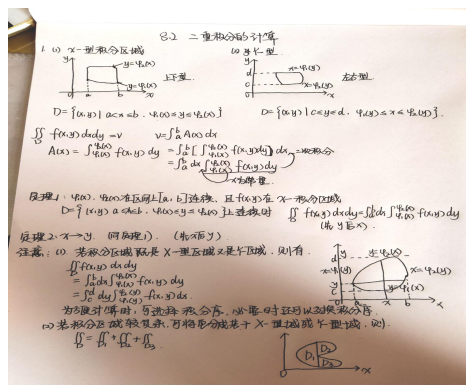 8.2 二重积分的计算
1. (1) x-型积分区域 (2) y-型
y y=φ₂(x) 上下型 y=φ₁(x) a b x
y d x=φ₁(y) c x=φ₂(y) 左右型 x
D={(x,y) | a≤x≤b, φ₁(x)≤y≤φ₂(x)} D={(x,y) | c≤y≤d, φ₁(y)≤x≤φ₂(y)}.
∬_D f(x,y)dxdy=V V=∫_a^b A(x)dx
A(x)=∫_{φ₁(x)}^{φ₂(x)} f(x,y)dy =∫_a^b[∫_{φ₁(x)}^{φ₂(x)} f(x,y)dy]dx 二次积分
=∫_a^b dx∫_{φ₁(x)}^{φ₂(x)} f(x,y)dy
x为常量
定理1: φ₁(x), φ₂(x)在区间[a,b]连续, 且f(x,y)在x-积分区域
D={(x,y) a≤x≤b, φ₁(x)≤y≤φ₂(x)}上连续时 ∬_D f(x,y)dxdy=∫_a^b dx∫_{φ₁(x)}^{φ₂(x)} f(x,y)dy
(先y后x).
定理2. x→y. (同定理1). (先x后y)
注意: (1) 若积分区域既是X-型区域又是Y-区域, 则有.
∬_D f(x,y)dxdy
=∫_a^b dx∫_{φ₁(x)}^{φ₂(x)} f(x,y)dy
=∫_c^d dy∫_{φ₁(y)}^{φ₂(y)} f(x,y)dx.
为方便计算, 可选择积分序, 必要时还可以交换积分序.
(2) 若积分区域较复杂, 可将它分成若干X-型域或Y-型域, 则.
∬_D=∬_{D₁}+∬_{D₂}+∬_{D₃}
D₁ D₂ D₃ x